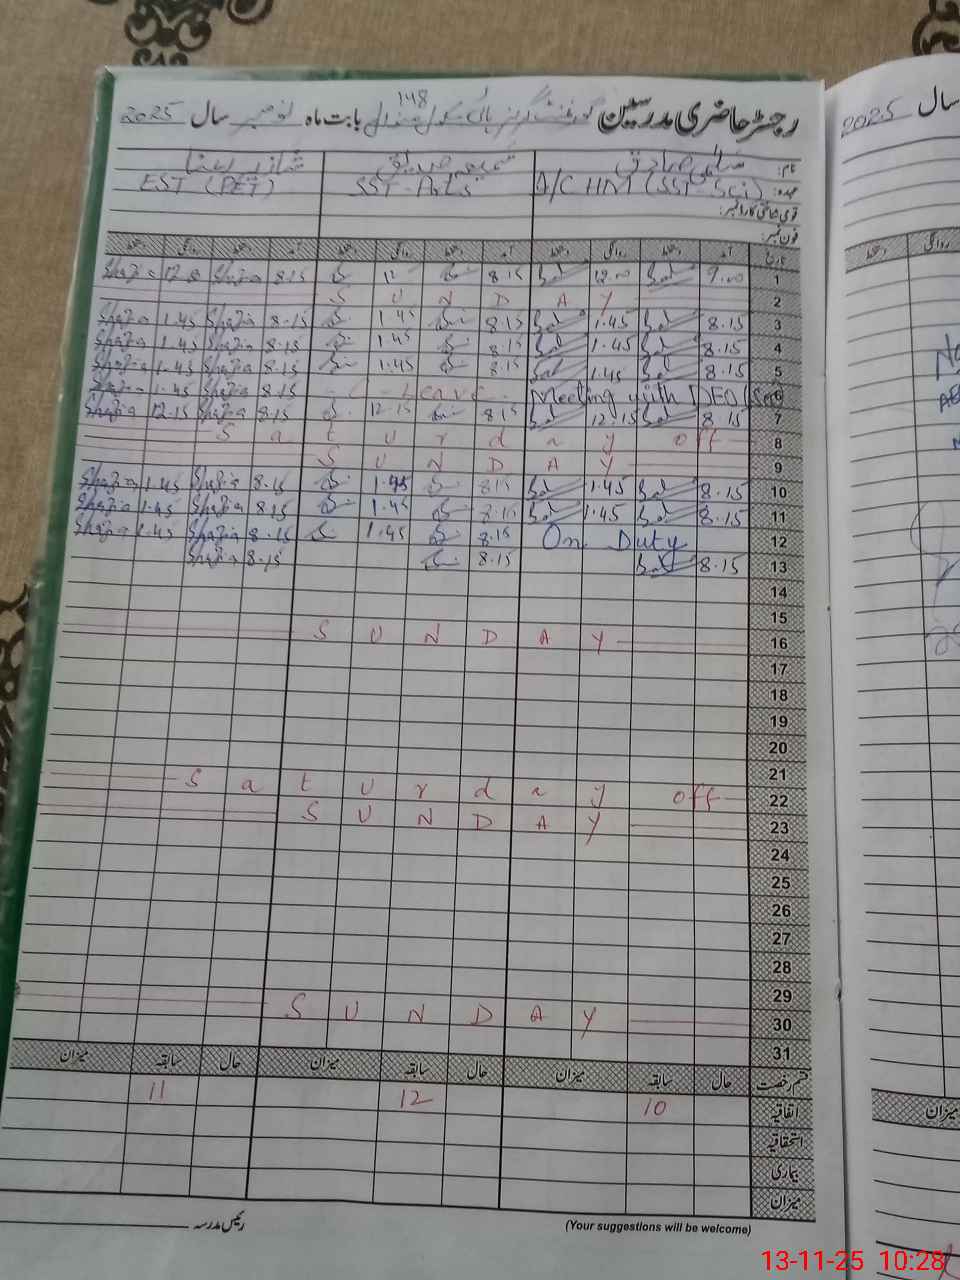 رجسٹر حاضری مدرسین گورنمنٹ گرلز ہائی سکول 148 بابت ماہ نومبر سال 2025
نام: سلمیٰ صادق شمیم صدیق شازیہ
عہدہ: A/C HM (SST-Sci) SST-Arts EST (PET)
قومی شناختی کارڈ نمبر:
فون نمبر:
تاریخ آمد دستخط روانگی دستخط آمد دستخط روانگی دستخط آمد دستخط روانگی دستخط
Shazia 12.00 Shazia 8.15 12 8.15 Sal 12.00 Sal 9.00 1
S U N D A Y 2
Shazia 1.45 Shazia 8.15 1.45 8.15 Sal 1.45 Sal 8.15 3
Shazia 1.45 Shazia 8.15 1.45 8.15 Sal 1.45 Sal 8.15 4
Shazia 1.45 Shazia 8.15 1.45 8.15 Sal 1.45 Sal 8.15 5
Shazia 1.45 Shazia 8.15 C-Leave Meeting with DEO (SE) 6
Shazia 12.15 Shazia 8.15 12.15 8.15 Sal 12.15 Sal 8.15 7
S a t u r d a y off 8
S U N D A Y 9
Shazia 1.45 Shazia 8.15 1.45 8.15 Sal 1.45 Sal 8.15 10
Shazia 1.45 Shazia 8.15 1.45 8.15 Sal 1.45 Sal 8.15 11
Shazia 1.45 Shazia 8.15 1.45 8.15 On Duty 12
Shazia 8.15 8.15 Sal 8.15 13
14
15
S U N D A Y 16
17
18
19
20
21
S a t u r d a y off 22
S U N D A Y 23
24
25
26
27
28
29
S U N D A Y 30
31
قسم رخصت حال سابقہ میزان حال سابقہ میزان حال سابقہ میزان
اتفاقیہ 10 12 11
استحقاقیہ
بیماری
میزان
رئیس مدرسہ
(Your suggestions will be welcome)
سال 2025
روانگی دستخط
میزان
13-11-25 10:28